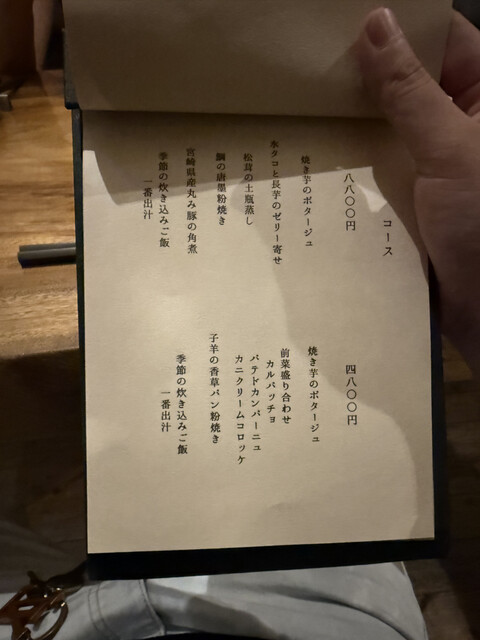 コース
八八〇〇円
焼き芋のポタージュ
水タコと長芋のゼリー寄せ
松茸の土瓶蒸し
鯛の唐墨粉焼き
宮崎県産丸み豚の角煮
季節の炊き込みご飯
一番出汁
四八〇〇円
焼き芋のポタージュ
前菜盛り合わせ
カルパッチョ
パテドカンパーニュ
カニクリームコロッケ
子羊の香草パン粉焼き
季節の炊き込みご飯
一番出汁